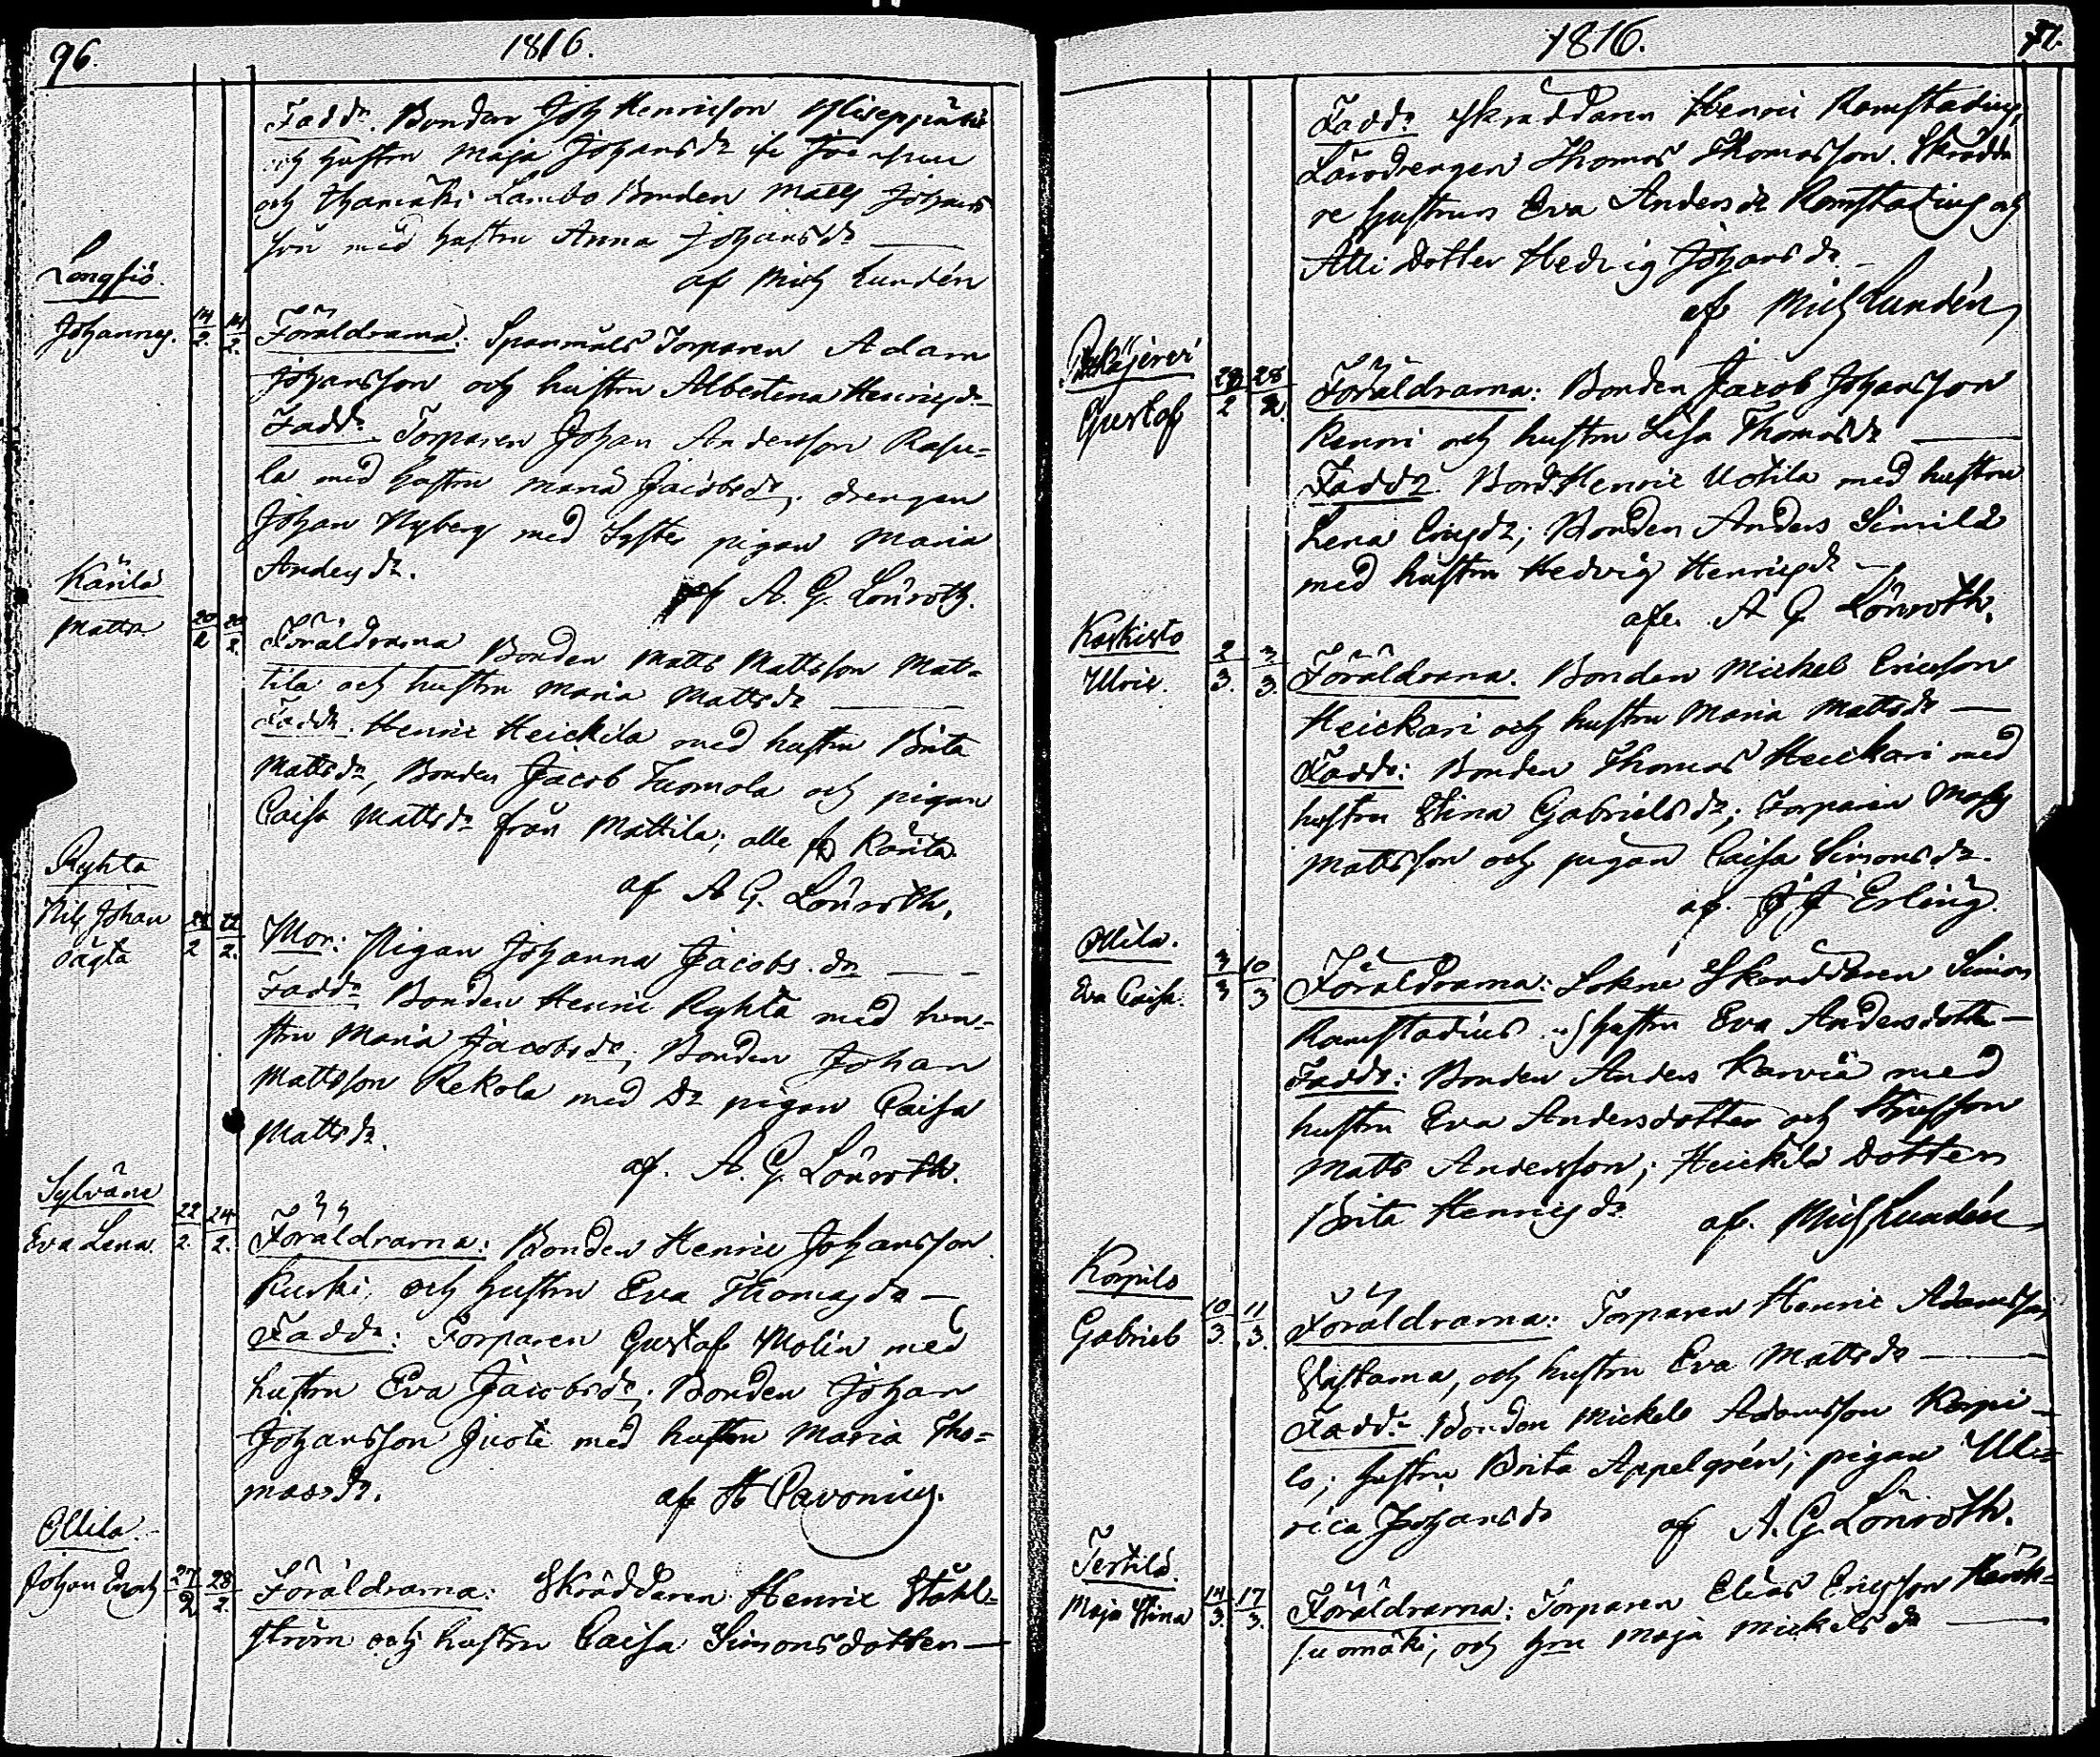 96.
1816.
Fadd:r Bonden Joh Henricson
och hustru Maja Johansdr
och Lambo Bonden Matts Johans
son med hustru Anna Johansdr
af Mich Lundén
Longsiö.
Johannes. 14/2 14/2 Föräldrarna: Spanmåls Torparen Adam
Johansson och hustru Albertina Henricsdr
Fadd:r Torparen Johan Andersson Rasu=
la med hustru Maria Jacobsdr, drengen
Johan Nyberg med Syster pigan Maria
Andersdr.
af A. G. Lönroth.
Kärilä
Matts 20/2 20/2 Föräldrarna Bonden Matts Mattsson Mat=
tila och hustru Maria Mattsdr
Fadd:r Henric Heickila med hustru Brita
Mattsdr, Bonden Jacob Tuomola och pigan
Caisa Mattsdr från Mattila; alle fr Kärilä
af A G. Lönroth.
Ryhtä
Nils Johan
oägta 2 22/2 Mor: Pigan Johanna Jacobs.dr
Fadd:r Bonden Henric Ryhtä med hu=
stru Maria Jacobsdr, Bonden Johan
Mattsson Rekola med Dr pigan Caisa
Mattsdr.
af. A. G. Lönroth.
Sylväne
Eva Lena. 22/2 24/2 Föräldrarna: Bonden Henric Johansson
Kuski, och hustru Eva Thomasdr
Fadd:r: Torparen Gustaf Molin med
hustru Eva Jacobsdr; Bonden Johan
Johansson Juoti med hustru Maria Tho=
masdr.
af H Pavonius.
Ollila.
Johan Enoch 27/2 28/2 Föräldrarna: Skräddaren Henric Ståhl=
ström och hustru Caisa Simonsdotter
1816.
Fadd:r Skräddaren Henric Ramstadius,
Lärodrengen Thomas Thomasson. Skrädda
re hustrun Eva Andersdr Ramstadius och
Alli Dotter Hedvig Johansdr.
af Mich Lundén
Gustaf 28/2 28/2 Föräldrarna: Bonden Jacob Johansson
Renni och hustru Lisa Thomasdr
Fadd:r Bond. Henric Uotila med hustru
Lena Ericsdr; Bonden Anders Simila
med hustru Hedvig Henricsdr
af A G Lönroth.
Koskisto
Ulric. 2/3 3/3 Föräldrarna. Bonden Mickel Ericsson
Heickari och hustru Maria Mattsdr
Fadd:r: Bonden Thomas Heickari med
hustru Stina Gabrielsdr; Torparen
Mattsson och pigan Caisa Simonsdr.
af. J J Erling.
Ollila.
Eva Caisa. 3/3 10/3 Föräldrarna: Sokne Skräddaren Simon
Ramstadius och hustru Eva Andersdotter
Fadd:r: Bonden Anders Karviä med
hustru Eva Andersdotter och
Matts Andersson; Heickilä Dotter
Brita Henricsdr af. Mich Lundén
Korpilo
Gabriel 10/3 11/3 Föräldrarna: Torparen Henric Adamsson
och hustru Eva Mattsdr
Fadd:r Bonden Mickel Adamsson Korpi=
lo; hustru Brita Appelgrén; pigan Ul=
rica Johansdr af A. G. Lönroth.
Tertilä.
Maja Stina 14/3 17/3 Föräldrarna: Torparen Elias Ericsson
suomäki, och hru Maja Mickelsdr